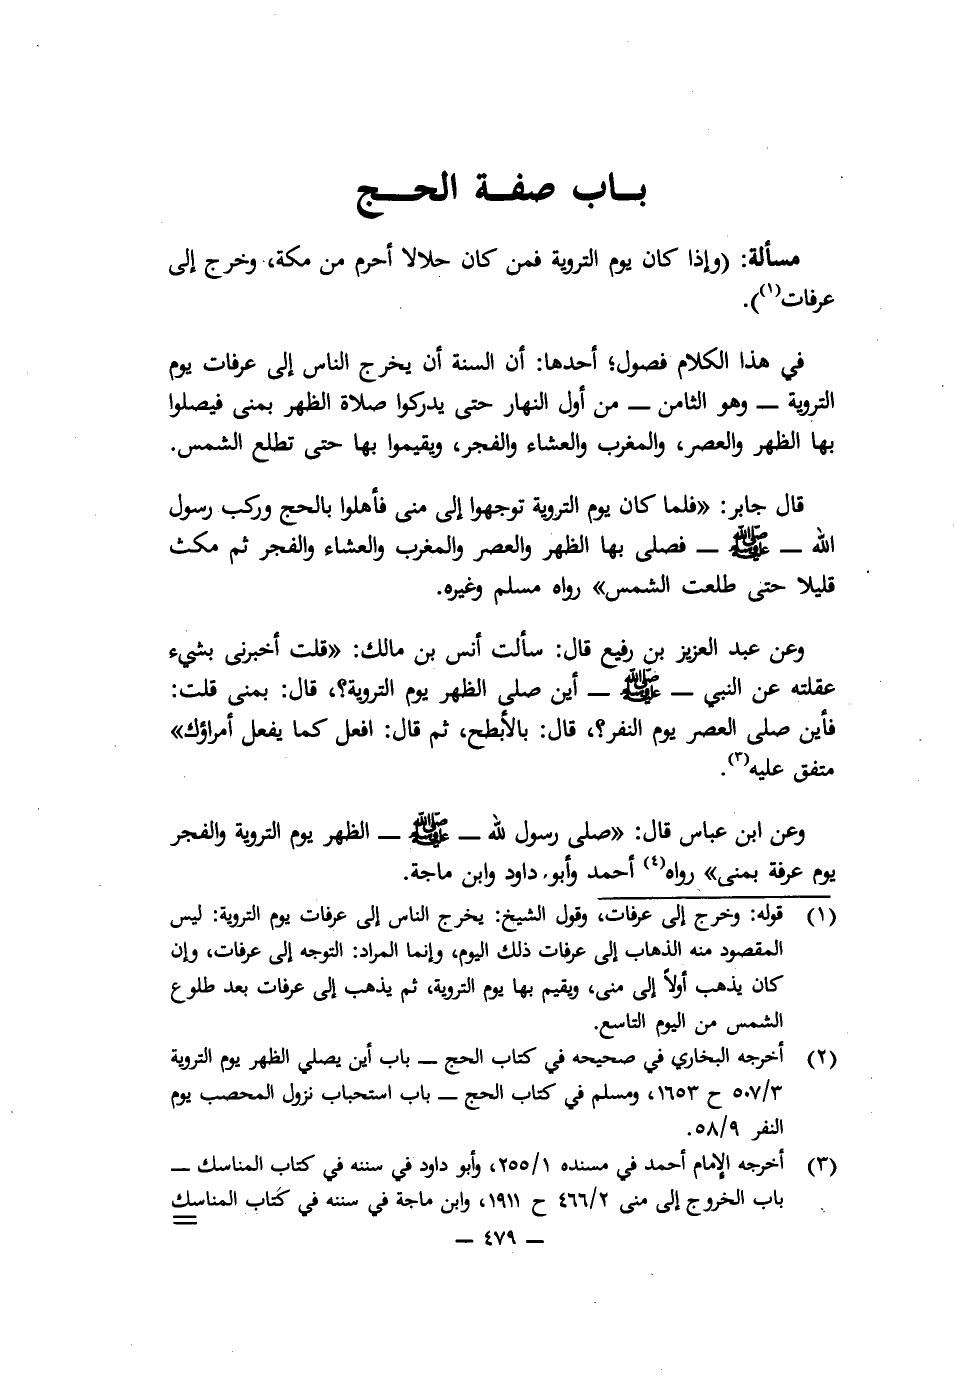 بـاب صفـة الحـج
مسألة: (وإذا كان يوم التروية فمن كان حلالا أحرم من مكة، وخرج إلى
عرفات(١)).
في هذا الكلام فصول؛ أحدها: أن السنة أن يخرج الناس إلى عرفات يوم
التروية ــ وهو الثامن ــ من أول النهار حتى يدركوا صلاة الظهر بمنى فيصلوا
بها الظهر والعصر، والمغرب والعشاء والفجر، ويقيموا بها حتى تطلع الشمس.
قال جابر: «فلما كان يوم التروية توجهوا إلى منى فأهلوا بالحج وركب رسول
الله ــ ﷺ ــ فصلى بها الظهر والعصر والمغرب والعشاء والفجر ثم مكث
قليلا حتى طلعت الشمس» رواه مسلم وغيره.
وعن عبد العزيز بن رفيع قال: سألت أنس بن مالك: «قلت أخبرنى بشيء
عقلته عن النبي ــ ﷺ ــ أين صلى الظهر يوم التروية؟، قال: بمنى قلت:
فأين صلى العصر يوم النفر؟، قال: بالأبطح، ثم قال: افعل كما يفعل أمراؤك»
متفق عليه(٣).
وعن ابن عباس قال: «صلى رسول لله ــ ﷺ ــ الظهر يوم التروية والفجر
يوم عرفة بمنى» رواه(٤) أحمد وأبو داود وابن ماجة.
(١) قوله: وخرج إلى عرفات، وقول الشيخ: يخرج الناس إلى عرفات يوم التروية: ليس
المقصود منه الذهاب إلى عرفات ذلك اليوم، وإنما المراد: التوجه إلى عرفات، وإن
كان يذهب أولاً إلى منى، ويقيم بها يوم التروية، ثم يذهب إلى عرفات بعد طلوع
الشمس من اليوم التاسع.
(٢) أخرجه البخاري في صحيحه في كتاب الحج ــ باب أين يصلي الظهر يوم التروية
٥٠٧/٣ ح ١٦٥٣، ومسلم في كتاب الحج ــ باب استحباب نزول المحصب يوم
النفر ٥٨/٩.
(٣) أخرجه الإمام أحمد في مسنده ٢٥٥/١، وأبو داود في سننه في كتاب المناسك ــ
باب الخروج إلى منى ٤٦٦/٢ ح ١٩١١، وابن ماجة في سننه في كتاب المناسك
ــ ٤٧٩ ــ